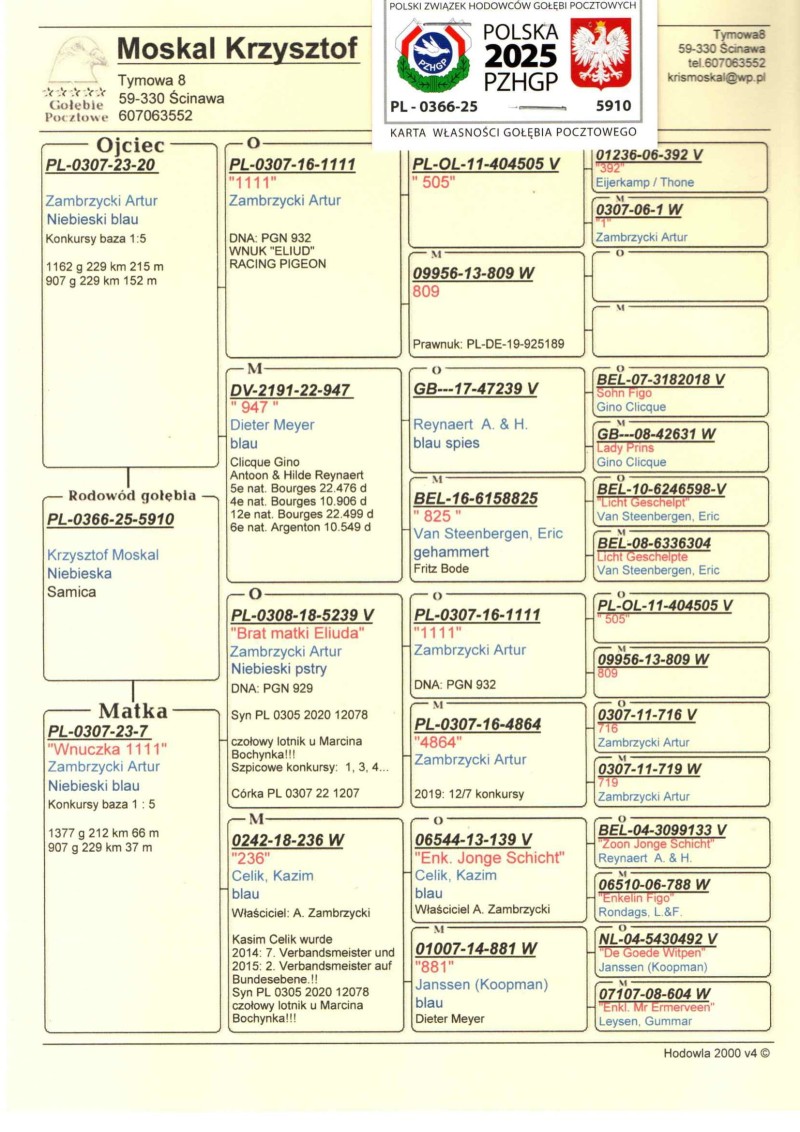 POLSKI ZWIĄZEK HODOWCÓW GOŁĘBI POCZTOWYCH
POLSKA
2025
PZHGP
PZHGP
PL - 0366-25
5910
KARTA WŁASNOŚCI GOŁĘBIA POCZTOWEGO
Gołębie
Pocztowe
Moskal Krzysztof
Tymowa 8
59-330 Ścinawa
607063552
Tymowa8
59-330 Ścinawa
tel.607063552
krismoskal@wp.pl
Ojciec
PL-0307-23-20
Zambrzycki Artur
Niebieski blau
Konkursy baza 1:5
1162 g 229 km 215 m
907 g 229 km 152 m
Rodowód gołębia
PL-0366-25-5910
Krzysztof Moskal
Niebieska
Samica
Matka
PL-0307-23-7
"Wnuczka 1111"
Zambrzycki Artur
Niebieski blau
Konkursy baza 1 : 5
1377 g 212 km 66 m
907 g 229 km 37 m
O
PL-0307-16-1111
"1111"
Zambrzycki Artur
DNA: PGN 932
WNUK "ELIUD"
RACING PIGEON
M
DV-2191-22-947
" 947 "
Dieter Meyer
blau
Clicque Gino
Antoon & Hilde Reynaert
5e nat. Bourges 22.476 d
4e nat. Bourges 10.906 d
12e nat. Bourges 22.499 d
6e nat. Argenton 10.549 d
O
PL-0308-18-5239 V
"Brat matki Eliuda"
Zambrzycki Artur
Niebieski pstry
DNA: PGN 929
Syn PL 0305 2020 12078
czołowy lotnik u Marcina
Bochynka!!!
Szpicowe konkursy: 1, 3, 4...
Córka PL 0307 22 1207
M
0242-18-236 W
"236"
Celik, Kazim
blau
Właściciel: A. Zambrzycki
Kasim Celik wurde
2014: 7. Verbandsmeister und
2015: 2. Verbandsmeister auf
Bundesebene.!!
Syn PL 0305 2020 12078
czołowy lotnik u Marcina
Bochynka!!!
PL-OL-11-404505 V
" 505"
M
09956-13-809 W
809
Prawnuk: PL-DE-19-925189
O
GB---17-47239 V
Reynaert A. & H.
blau spies
M
BEL-16-6158825
" 825 "
Van Steenbergen, Eric
gehammert
Fritz Bode
O
PL-0307-16-1111
"1111"
Zambrzycki Artur
DNA: PGN 932
M
PL-0307-16-4864
"4864"
Zambrzycki Artur
2019: 12/7 konkursy
O
06544-13-139 V
"Enk. Jonge Schicht"
Celik, Kazim
blau
Właściciel A. Zambrzycki
M
01007-14-881 W
"881"
Janssen (Koopman)
blau
Dieter Meyer
01236-06-392 V
"392"
Eijerkamp / Thone
M
0307-06-1 W
"1"
Zambrzycki Artur
O
M
O
BEL-07-3182018 V
Sohn Figo
Gino Clicque
M
GB---08-42631 W
Lady Prins
Gino Clicque
O
BEL-10-6246598-V
"Licht Geschelpt"
Van Steenbergen, Eric
M
BEL-08-6336304
Licht Geschelpte
Van Steenbergen, Eric
O
PL-OL-11-404505 V
" 505"
M
09956-13-809 W
809
O
0307-11-716 V
716
Zambrzycki Artur
M
0307-11-719 W
719
Zambrzycki Artur
O
BEL-04-3099133 V
"Zoon Jonge Schicht"
Reynaert A. & H.
M
06510-06-788 W
"Enkelin Figo"
Rondags, L.&F.
O
NL-04-5430492 V
"De Goede Witpen"
Janssen (Koopman)
M
07107-08-604 W
"Enkl. Mr Ermerveen"
Leysen, Gummar
Hodowla 2000 v4 ©